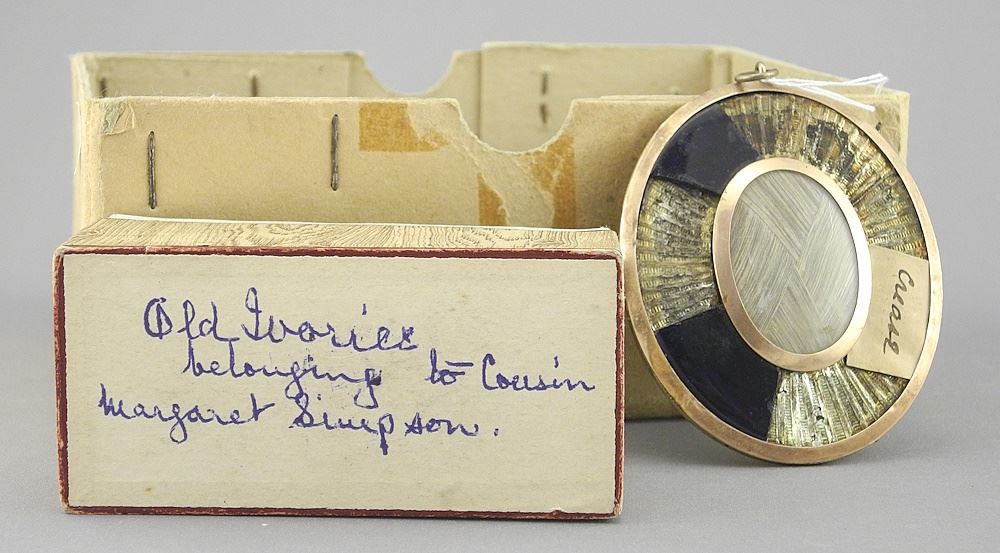 Old Ivories
belonging to Cousin
Margaret Simpson.
Crease